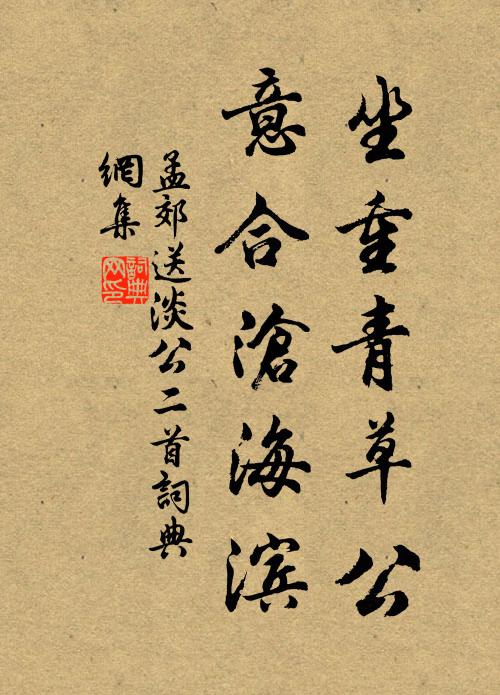 坐重青草公
意合滄海滨
孟郊送淡公二首詞典
網集
詞典
网印